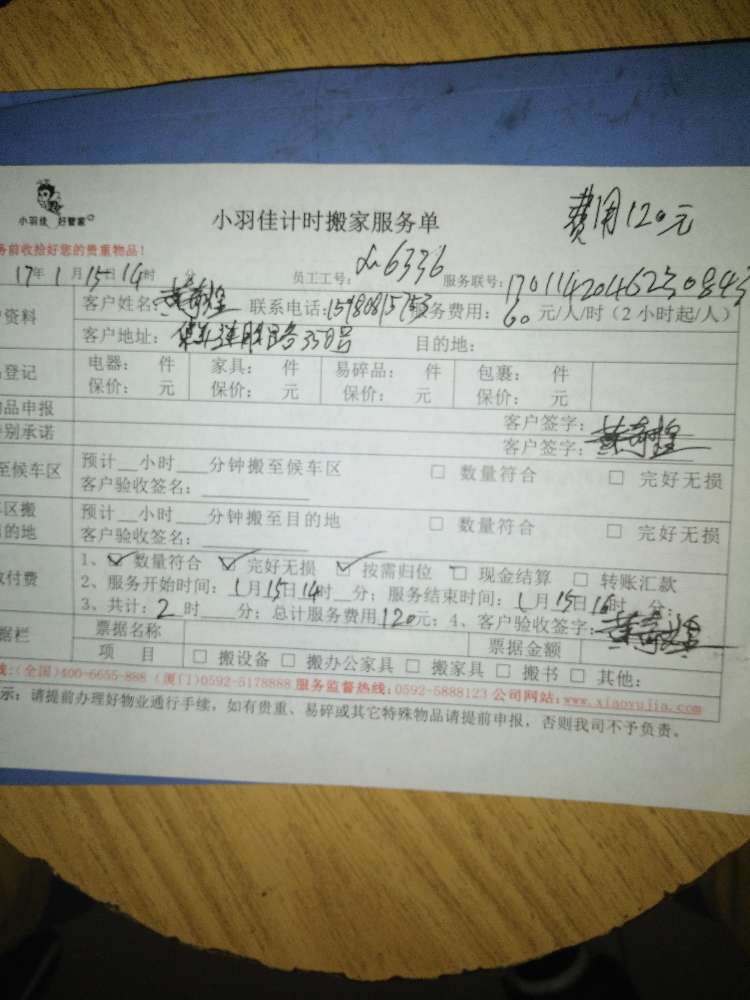 小羽佳 好管家
小羽佳计时搬家服务单
费用120元
务前收拾好您的贵重物品！
17年1月15日14时 分 员工工号： 6336 服务联号：
户资料 客户姓名： 联系电话： 服务费用：60元/人/时（2小时起/人）
客户地址： 358号 目的地：
品登记 电器： 件 家具： 件 易碎品： 件 包裹： 件
保价： 元 保价： 元 保价： 元 保价： 元
物品申报 客户签字：
特别承诺 客户签字：
至候车区 预计__小时____分钟搬至候车区 □ 数量符合 □ 完好无损
客户验收签名：
车区搬 预计__小时____分钟搬至目的地 □ 数量符合 □ 完好无损
目的地 客户验收签名：
付费 1、☑数量符合 ☑完好无损 ☑按需归位 □ 现金结算 □ 转账汇款
2、服务开始时间：1月15日14时__分；服务结束时间：1月15日16时__分；
3、共计：2时____分；总计服务费用120元；4、客户验收签字：
据栏 票据名称 票据金额
项 目 □ 搬设备 □ 搬办公家具 □ 搬家具 □ 搬书 □ 其他：
线：（全国）400-6655-888（厦门）0592-5178888 服务监督热线：0592-5888123 公司网站：www.xiaoyujia.com
示：请提前办理好物业通行手续，如有贵重、易碎或其它特殊物品请提前申报，否则我司不予负责。